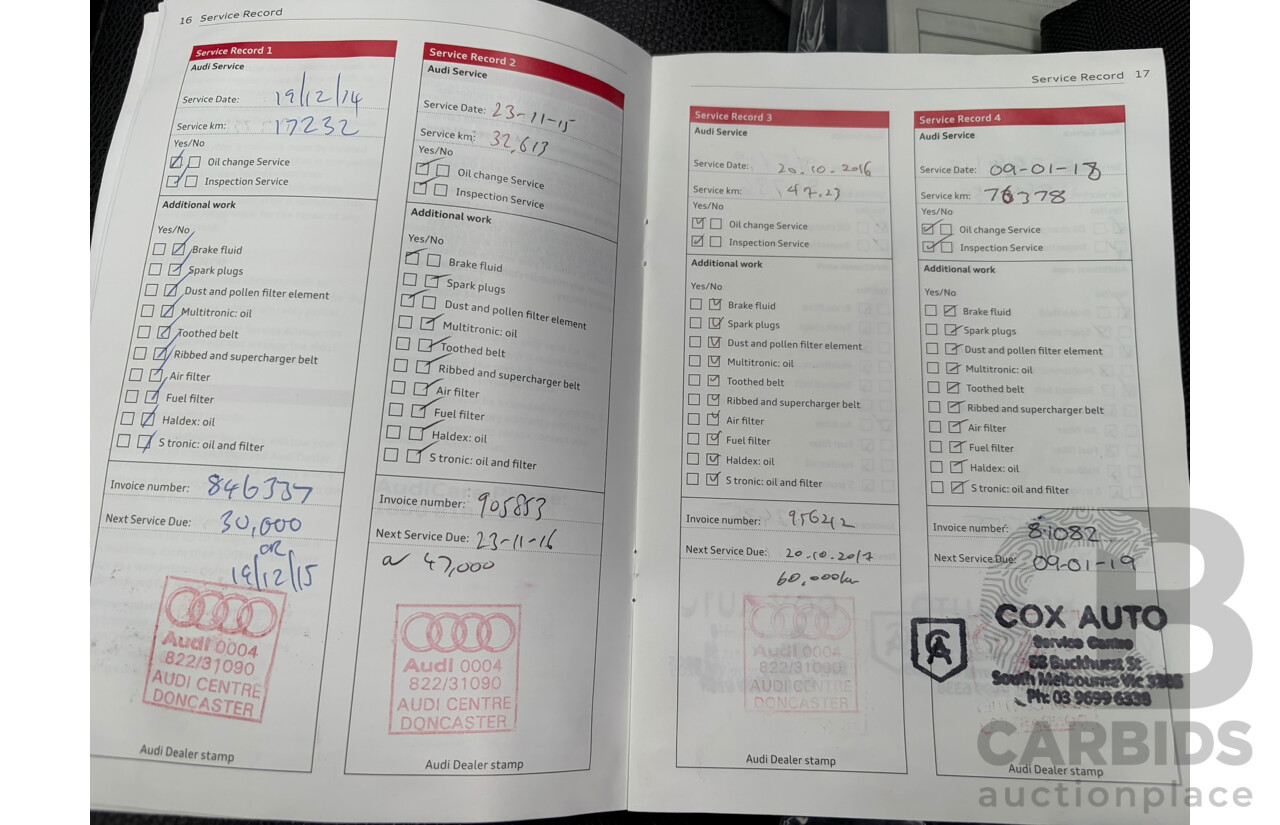 16 Service Record
Service Record 1
Audi Service
Service Date: 19/12/14
Service km: 17232
Yes/No
Oil change Service
Inspection Service
Additional work
Yes/No
Brake fluid
Spark plugs
Dust and pollen filter element
Multitronic: oil
Toothed belt
Ribbed and supercharger belt
Air filter
Fuel filter
Haldex: oil
S tronic: oil and filter
Invoice number: 846337
Next Service Due: 30,000
OR
19/12/15
Audi 0004
822/31090
AUDI CENTRE
DONCASTER
Audi Dealer stamp
Service Record 2
Audi Service
Service Date: 23-11-15
Service km: 32,613
Yes/No
Oil change Service
Inspection Service
Additional work
Yes/No
Brake fluid
Spark plugs
Dust and pollen filter element
Multitronic: oil
Toothed belt
Ribbed and supercharger belt
Air filter
Fuel filter
Haldex: oil
S tronic: oil and filter
Invoice number: 905853
Next Service Due: 23-11-16
or 47,000
Audi 0004
822/31090
AUDI CENTRE
DONCASTER
Audi Dealer stamp
Service Record 17
Service Record 3
Audi Service
Service Date: 20.10.2016
Service km:
Yes/No
Oil change Service
Inspection Service
Additional work
Yes/No
Brake fluid
Spark plugs
Dust and pollen filter element
Multitronic: oil
Toothed belt
Ribbed and supercharger belt
Air filter
Fuel filter
Haldex: oil
S tronic: oil and filter
Invoice number:
Next Service Due: 20.10.2017
60,000km
Audi 0004
822/31090
AUDI CENTRE
DONCASTER
Audi Dealer stamp
Service Record 4
Audi Service
Service Date: 09-01-18
Service km: 76378
Yes/No
Oil change Service
Inspection Service
Additional work
Yes/No
Brake fluid
Spark plugs
Dust and pollen filter element
Multitronic: oil
Toothed belt
Ribbed and supercharger belt
Air filter
Fuel filter
Haldex: oil
S tronic: oil and filter
Invoice number: 81082
Next Service Due: 09-01-19
COX AUTO
Service Centre
88 Buckhurst St
South Melbourne Vic 3205
Ph: 03 9699 6339
Audi Dealer stamp
CARBIDS
auctionplace